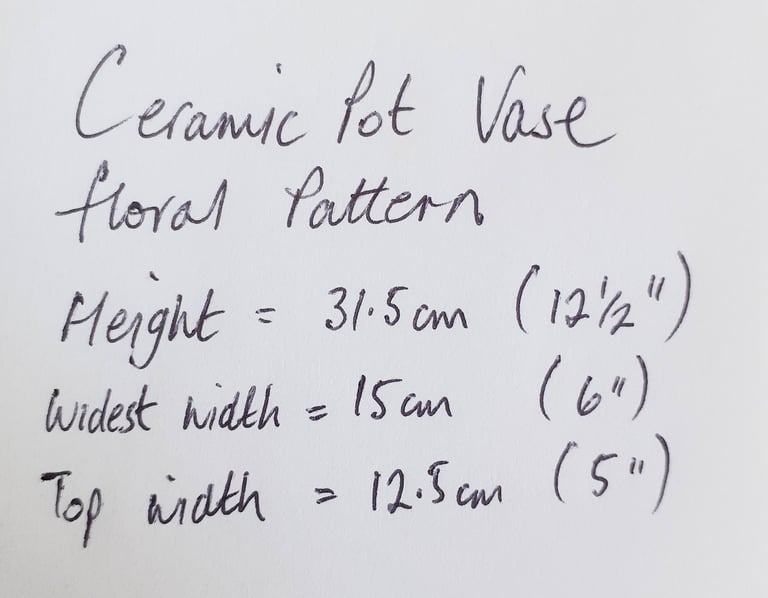 Ceramic Pot Vase
floral Pattern
Height = 31.5cm (12½")
Widest width = 15cm (6")
Top width = 12.5cm (5")